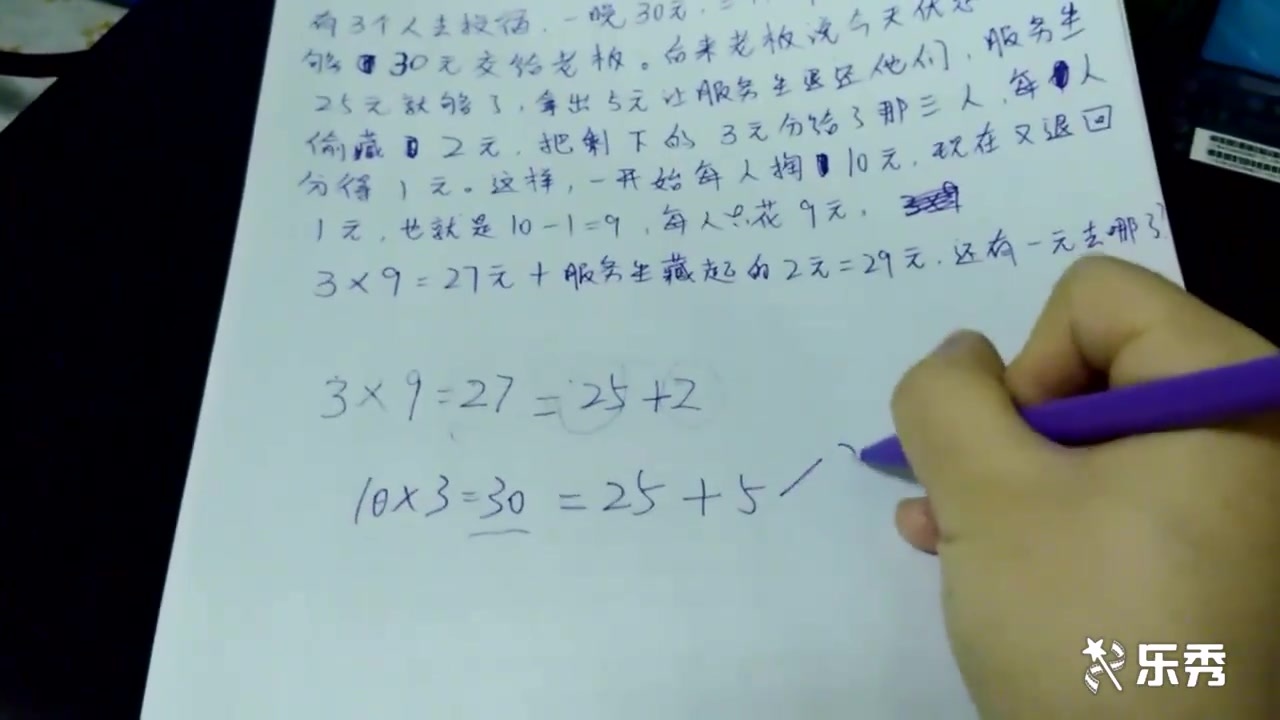 有3个人去投宿.一晚30元.三
够30元交给老板。后来老板说今天优
25元就够了,拿出5元让服务生退还他们,服务生
偷藏2元,把剩下的3元分给了那三人,每人
分得1元。这样,一开始每人掏10元,现在又退回
1元,也就是10-1=9,每人只花9元,
3×9=27元+服务生藏起的2元=29元.还有一元去哪了?
3×9=27=25+2
10×3=30=25+5
乐秀